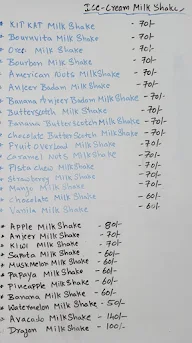 ICE-Cream Milk Shake
* KIT KAT Milk Shake - 70/-
* Bournvita Milk Shake - 70/-
* Oreo Milk Shake - 70/-
* Bourbon Milk Shake - 70/-
* American Nuts MilkShake - 70/-
* Anjeer Badam Milk Shake - 70/-
* Banana Anjeer Badam Milk Shake - 70/-
* Butterscotch Milk Shake - 70/-
* Banana Butterscotch Milk Shake - 70/-
* Chocolate ButterScotch Milk Shake - 70/-
* Fruit Overload Milk Shake - 70/-
* Caramel Nuts MilkShake - 70/-
* Pistachew Milk Shake - 70/-
* Strawberry Milk Shake - 70/-
* Mango Milk Shake - 70/-
* Chocolate MilkShake - 60/-
* Vanila Milk Shake - 60/-
* Apple Milk Shake - 80/-
* Anjeer Milk Shake - 70/-
* Kiwi Milk Shake - 70/-
* Sapota Milk Shake - 60/-
* MuskMelon Milk Shake - 60/-
* Papaya Milk Shake - 60/-
* Pineapple Milk Shake - 60/-
* Banana Milk Shake - 60/-
* Watermelon Milk Shake - 50/-
* Avacado MilkShake - 140/-
* Dragon MilkShake - 100/-